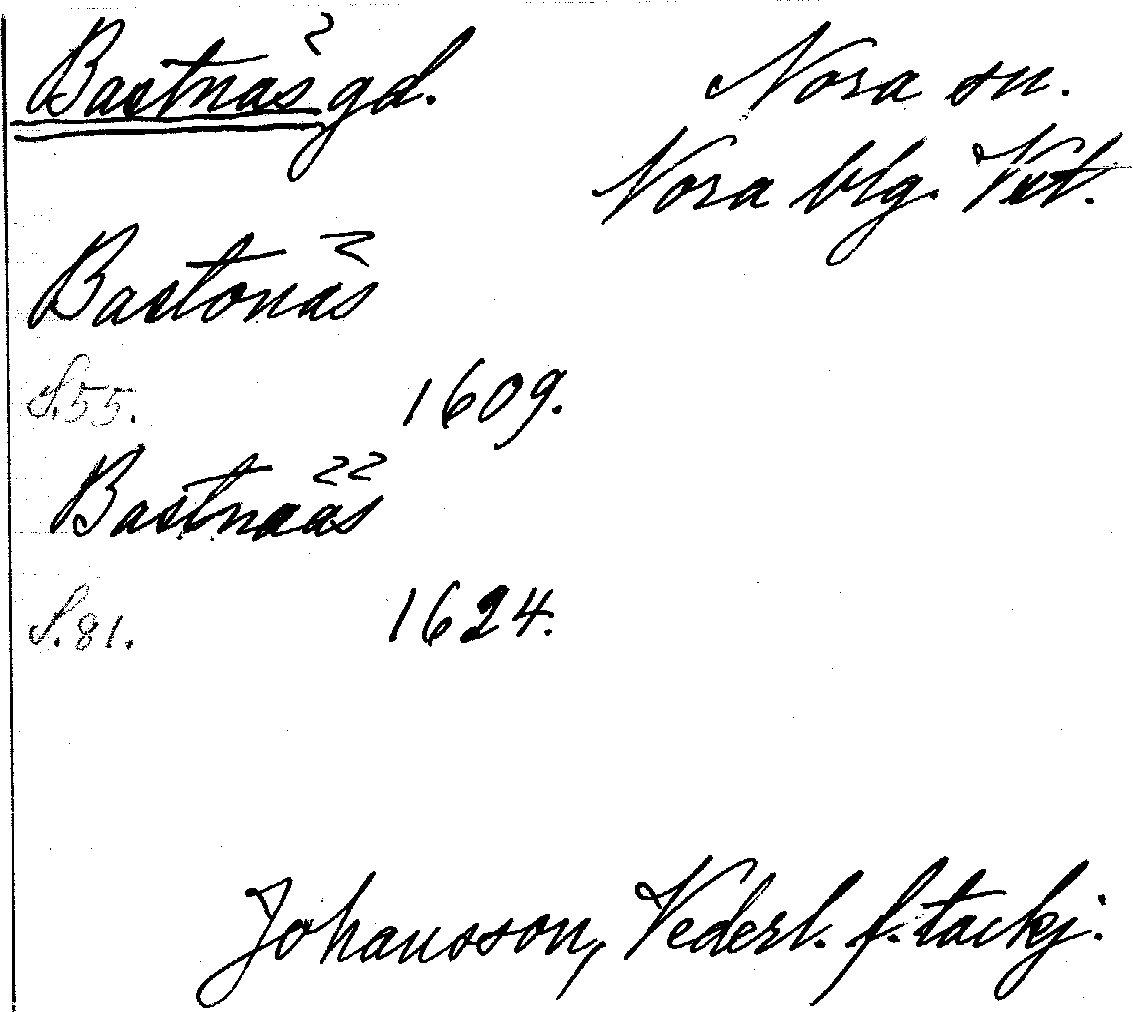 Bastnäs gd.
Nora sn.
Nora blg. Vstl.
Bastonäs
S. 55. 1609.
Bastnääs
S. 81. 1624.
Johansson, Vederl. f. tackj.